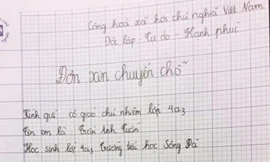 Cộng hoà xã hội chủ nghĩa Việt Nam
Độc lập - Tự do - Hạnh phúc
Đơn xin chuyển chỗ
Kính gửi cô giáo chủ nhiệm lớp 4a3
Em tên là Trần Anh Tuấn
Học sinh lớp 4a3 trường tiểu học Sông Đà